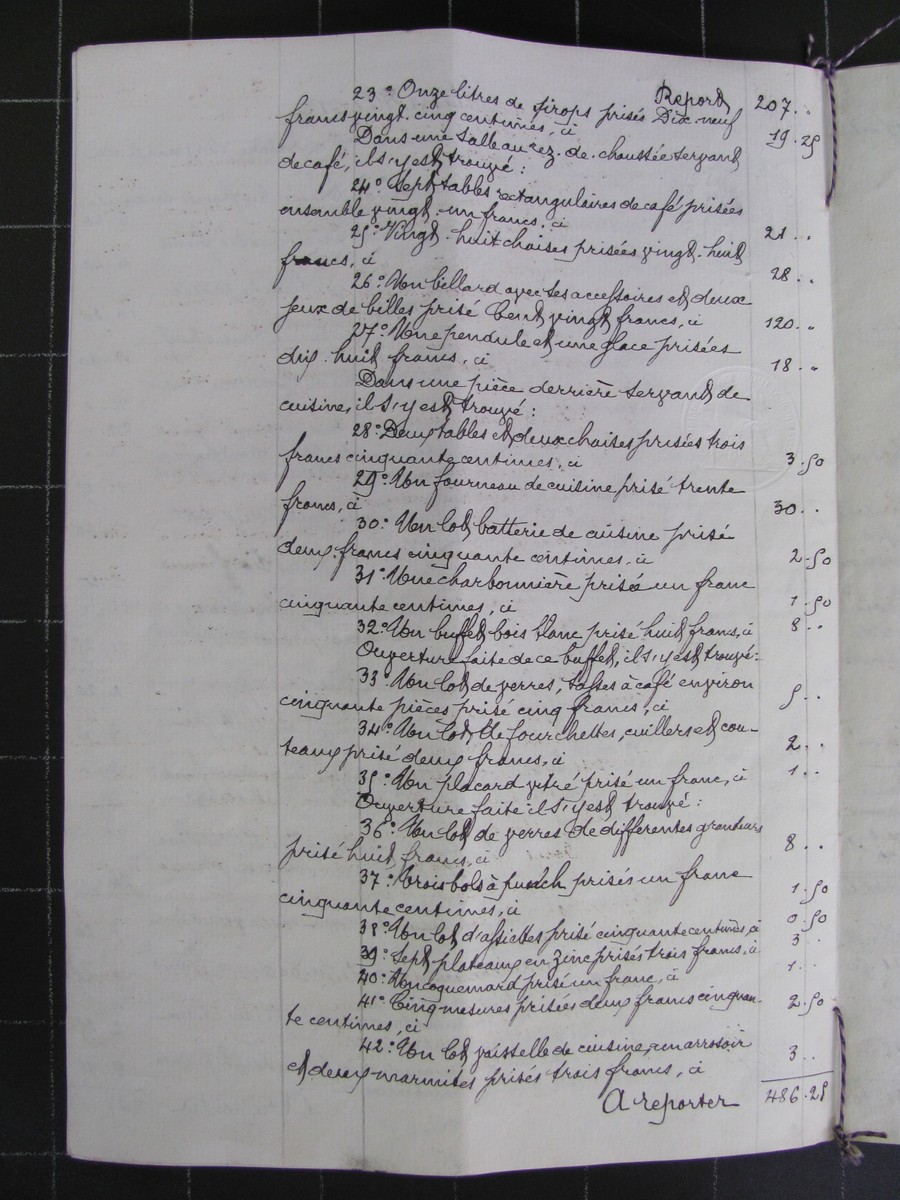 Report 207 . .
23° Onze litres de sirops prisés Dix neuf
francs vingt-cinq centimes, ci 19 . 25
Dans une salle au rez-de-chaussée servant
de café, il s'y est trouvé :
24° Sept tables rectangulaires de café prisées
ensemble vingt-un francs, ci 21 . .
25° Vingt-huit chaises prisées vingt-huit
francs, ci 28 . .
26° Un billard avec ses accessoires et deux
jeux de billes prisé Cent vingt francs, ci 120 . .
27° Une pendule et une glace prisées
dix-huit francs, ci 18 . .
Dans une pièce derrière servant de
cuisine, il s'y est trouvé :
28° Deux tables et deux chaises prisées trois
francs cinquante centimes, ci 3 . 50
29° Un fourneau de cuisine prisé trente
francs, ci 30 . .
30° Un lot batterie de cuisine prisé
deux francs cinquante centimes, ci 2 . 50
31° Une charbonnière prisée un franc
cinquante centimes, ci 1 . 50
32° Un buffet bois blanc prisé huit francs, ci 8 . .
Ouverture faite de ce buffet, il s'y est trouvé :
33° Un lot de verres, tasses à café environ
cinquante pièces prisé cinq francs, ci 5 . .
34° Un lot de fourchettes, cuillers et cou-
teaux prisé deux francs, ci 2 . .
35° Un placard vitré prisé un franc, ci 1 . .
Ouverture faite il s'y est trouvé :
36° Un lot de verres de différentes grandeurs
prisé huit francs, ci 8 . .
37° Trois bols à punch prisés un franc
cinquante centimes, ci 1 . 50
38° Un lot d'assiettes prisé cinquante centimes, ci 0 . 50
39° Sept plateaux en zinc prisés trois francs, ci 3 . .
40° Un coquemard prisé un franc, ci 1 . .
41° Cinq mesures prisées deux francs cinquan-
te centimes, ci 2 . 50
42° Un lot vaisselle de cuisine, un arrosoir
et deux marmites prisés trois francs, ci 3 . .
A reporter 486 . 25